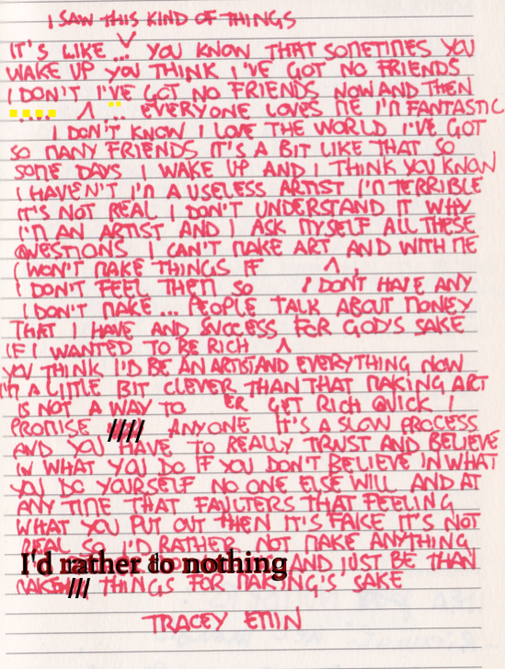 I SAW THIS KIND OF THINGS
IT'S LIKE ... YOU KNOW THAT SOMETIMES YOU
WAKE UP YOU THINK I'VE GOT NO FRIENDS
I DON'T I'VE GOT NO FRIENDS NOW AND THEN
.... ... EVERYONE LOVES ME I'M FANTASTIC
I DON'T KNOW I LOVE THE WORLD I'VE GOT
SO MANY FRIENDS IT'S A BIT LIKE THAT SO
SOME DAYS I WAKE UP AND I THINK YOU KNOW
I HAVEN'T I'M A USELESS ARTIST I'M TERRIBLE
IT'S NOT REAL I DON'T UNDERSTAND IT WHY
I'M AN ARTIST AND I ASK MYSELF ALL THESE
QUESTIONS I CAN'T MAKE ART AND WITH ME
I WON'T MAKE THINGS IF
I DON'T FEEL THEM SO I DON'T HAVE ANY
I DON'T MAKE ... PEOPLE TALK ABOUT MONEY
THAT I HAVE AND SUCCESS FOR GOD'S SAKE
IF I WANTED TO BE RICH
YOU THINK I'D BE AN ARTIST AND EVERYTHING NOW
I'M A LITTLE BIT CLEVER THAN THAT MAKING ART
IS NOT A WAY TO ER GET RICH QUICK I
PROMISE //// ANYONE IT'S A SLOW PROCESS
AND YOU HAVE TO REALLY TRUST AND BELIEVE
IN WHAT YOU DO IF YOU DON'T BELIEVE IN WHAT
YOU DO YOURSELF NO ONE ELSE WILL AND AT
ANY TIME THAT FAULTERS THAT FEELING
WHAT YOU PUT OUT THEN IT'S FAKE IT'S NOT
REAL SO I'D RATHER NOT MAKE ANYTHING
I'd rather to nothing AND JUST BE THAN
MAKING /// THINGS FOR MAKING'S SAKE
TRACEY EMIN